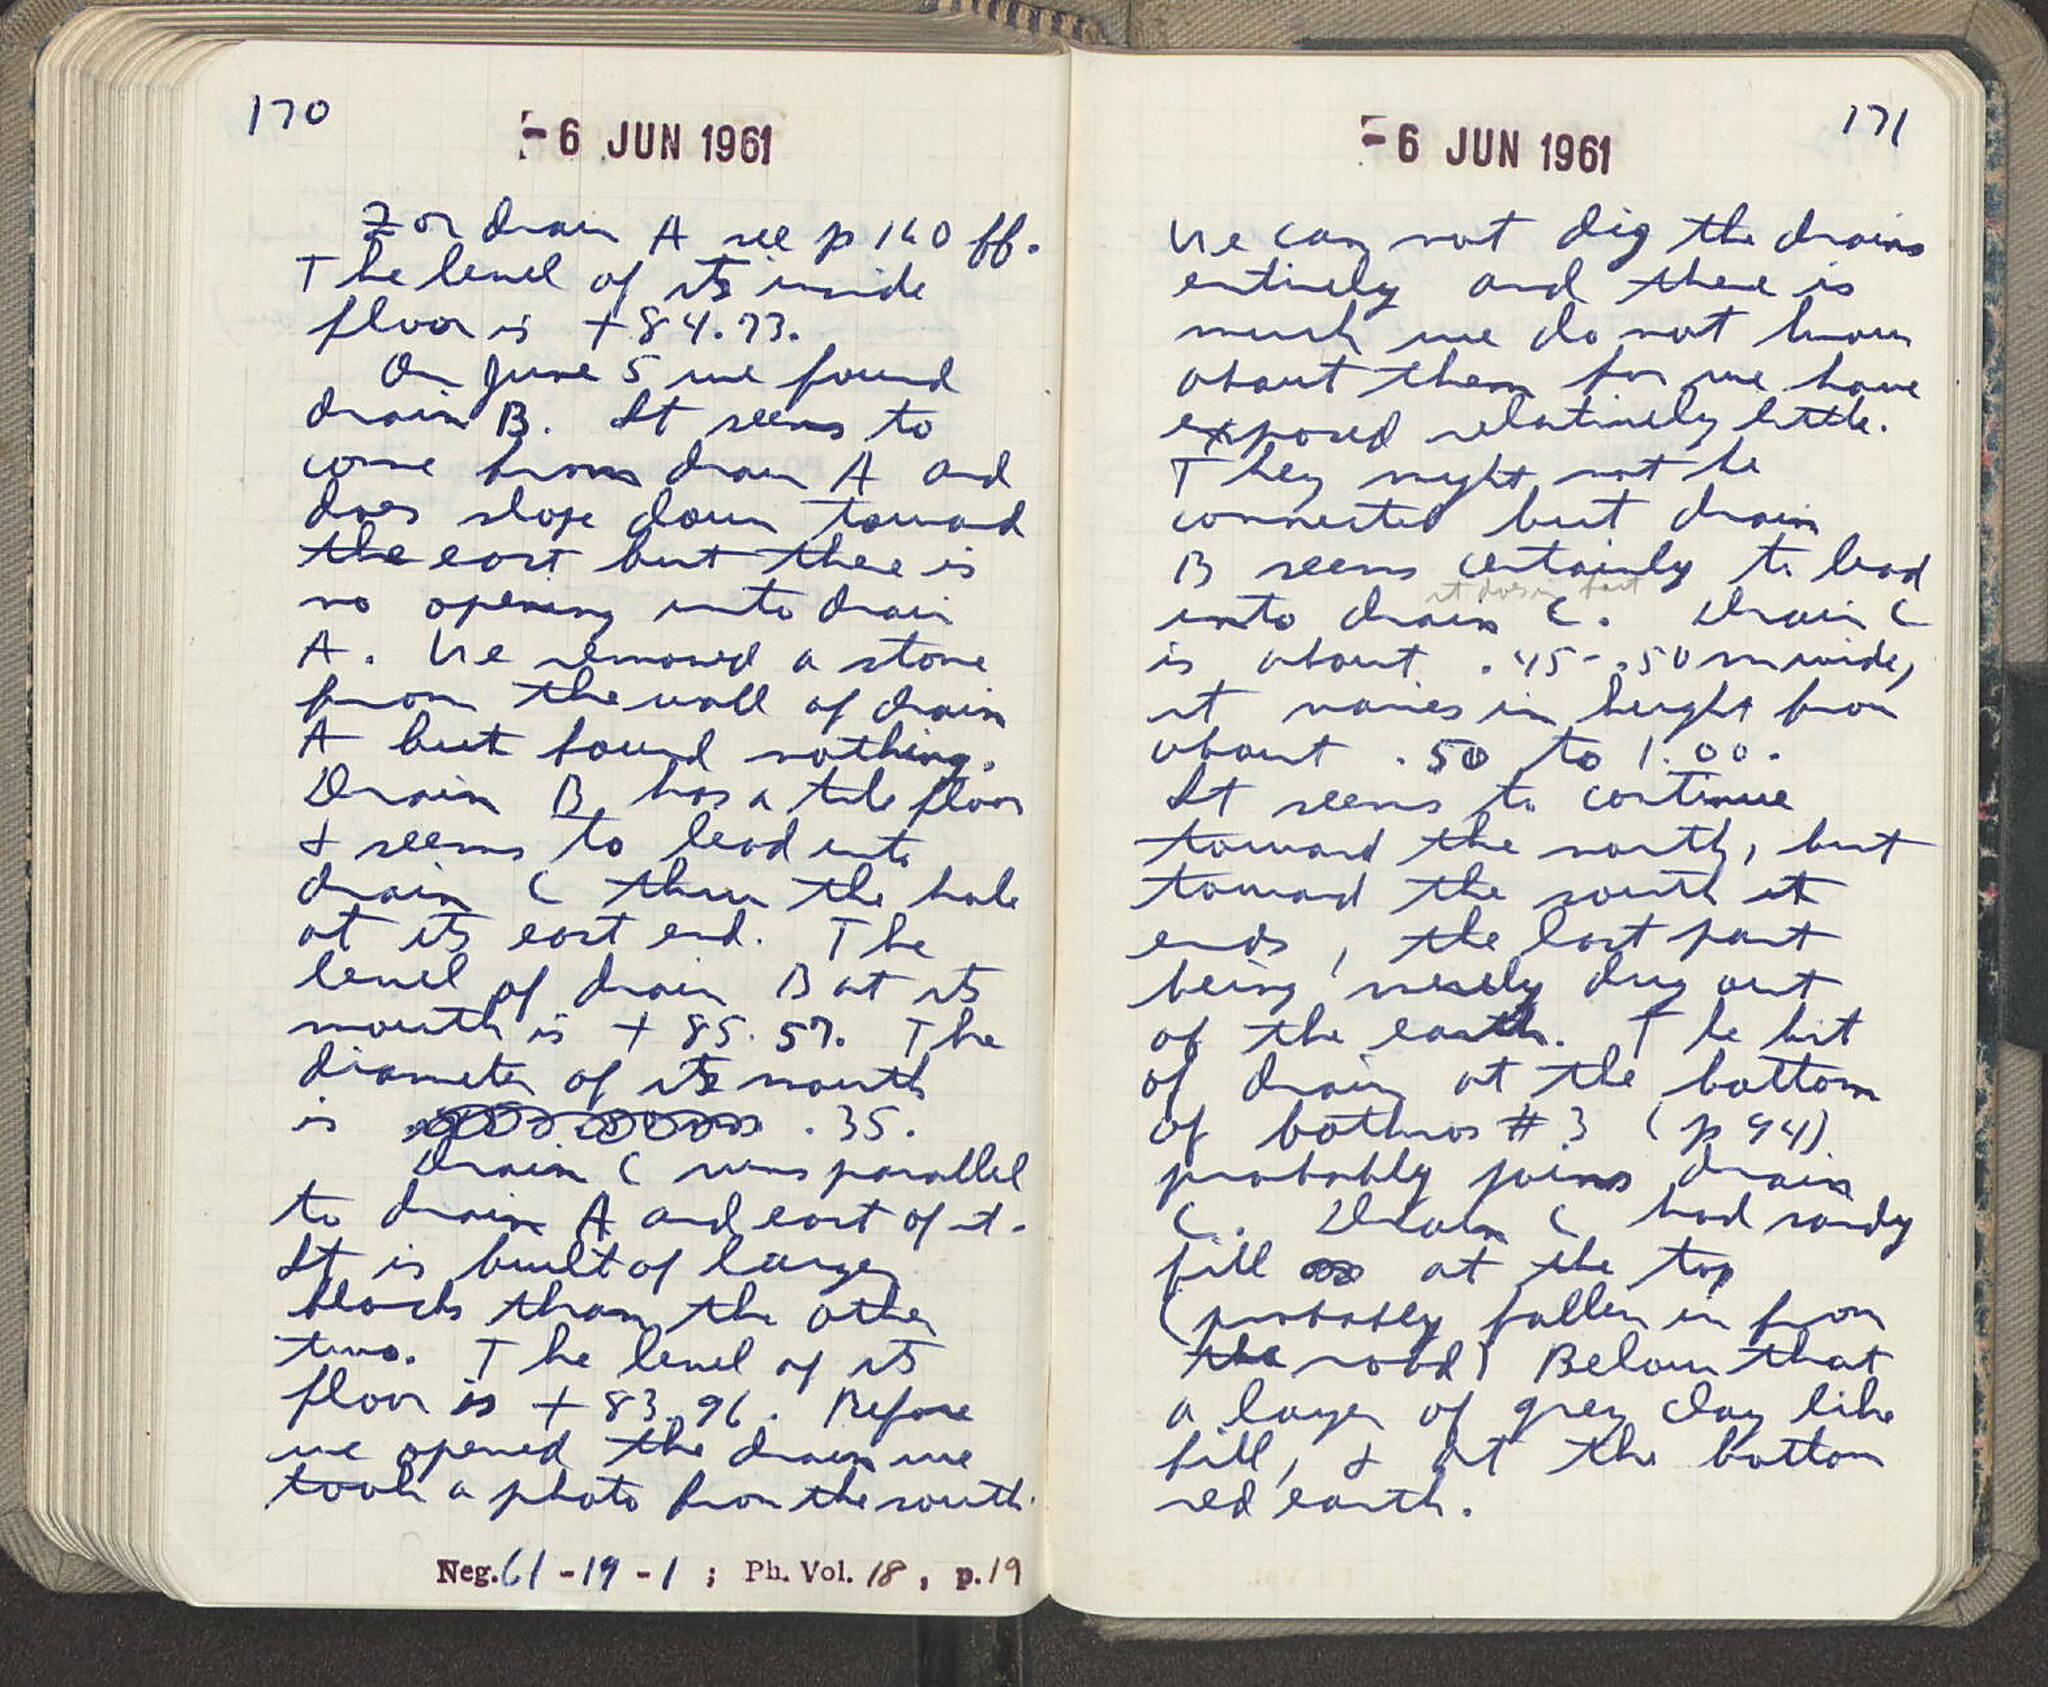 170
-6 JUN 1961
For drain A see p 160 ff.
The level of its inside
floor is + 84.73.
On June 5 we found
drain B. It seems to
come from drain A and
does slope down toward
the east but there is
no opening into drain
A. We removed a stone
from the wall of drain
A but found nothing.
Drain B has a tile floor
+ seems to lead into
drain C thru the hole
at its east end. The
level of drain B at its
mouth is + 85.57. The
diameter of its mouth
is .35.
Drain C runs parallel
to drain A and east of it.
It is built of larger
blocks than the other
two. The level of its
floor is + 83.96. Before
we opened the drain we
took a photo from the south.
Neg. 61-19-1 ; Ph. Vol. 18 , p. 19
171
-6 JUN 1961
We can not dig the drains
entirely and there is
much we do not know
about them for we have
exposed relatively little.
They might not be
connected but drain
B seems certainly to lead
it does in fact
into drain C. Drain C
is about .45-.50 m wide,
it varies in height from
about .50 to 1.00.
It seems to continue
toward the north, but
toward the south it
ends, the last part
being merely dug out
of the earth. The bit
of drain at the bottom
of bothros # 3 (p 94)
probably joins drain
C. Drain C had sandy
fill at the top
(probably fallen in from
the road) Below that
a layer of grey clay like
fill, + at the bottom
red earth.